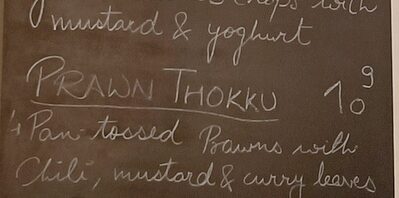 chops with
mustard & yoghurt
PRAWN THOKKU 10⁹
Pan-tossed Prawns with
Chili, mustard & curry leaves